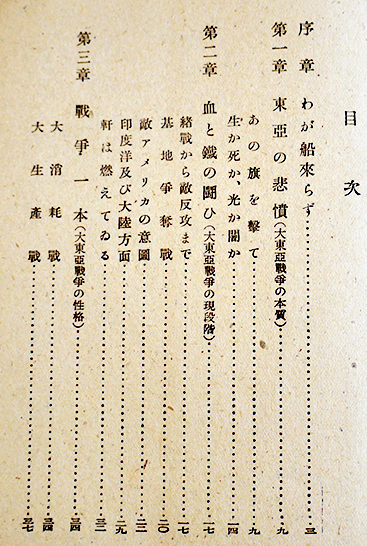 目次
序章 わが船來らず……………三
第一章 東亞の悲憤(大東亞戰爭の本質)……………九
あの旗を撃て……………九
生か死か、光か闇か……………一四
第二章 血と鐵の鬪ひ(大東亞戰爭の現段階)……………一七
緒戰から敵反攻まで……………一七
基地爭奪戰……………二〇
敵アメリカの意圖……………二三
印度洋及び大陸方面……………二九
軒は燃えてゐる……………三一
第三章 戰爭一本(大東亞戰爭の性格)……………三四
大消耗戰……………三四
大生產戰……………三七